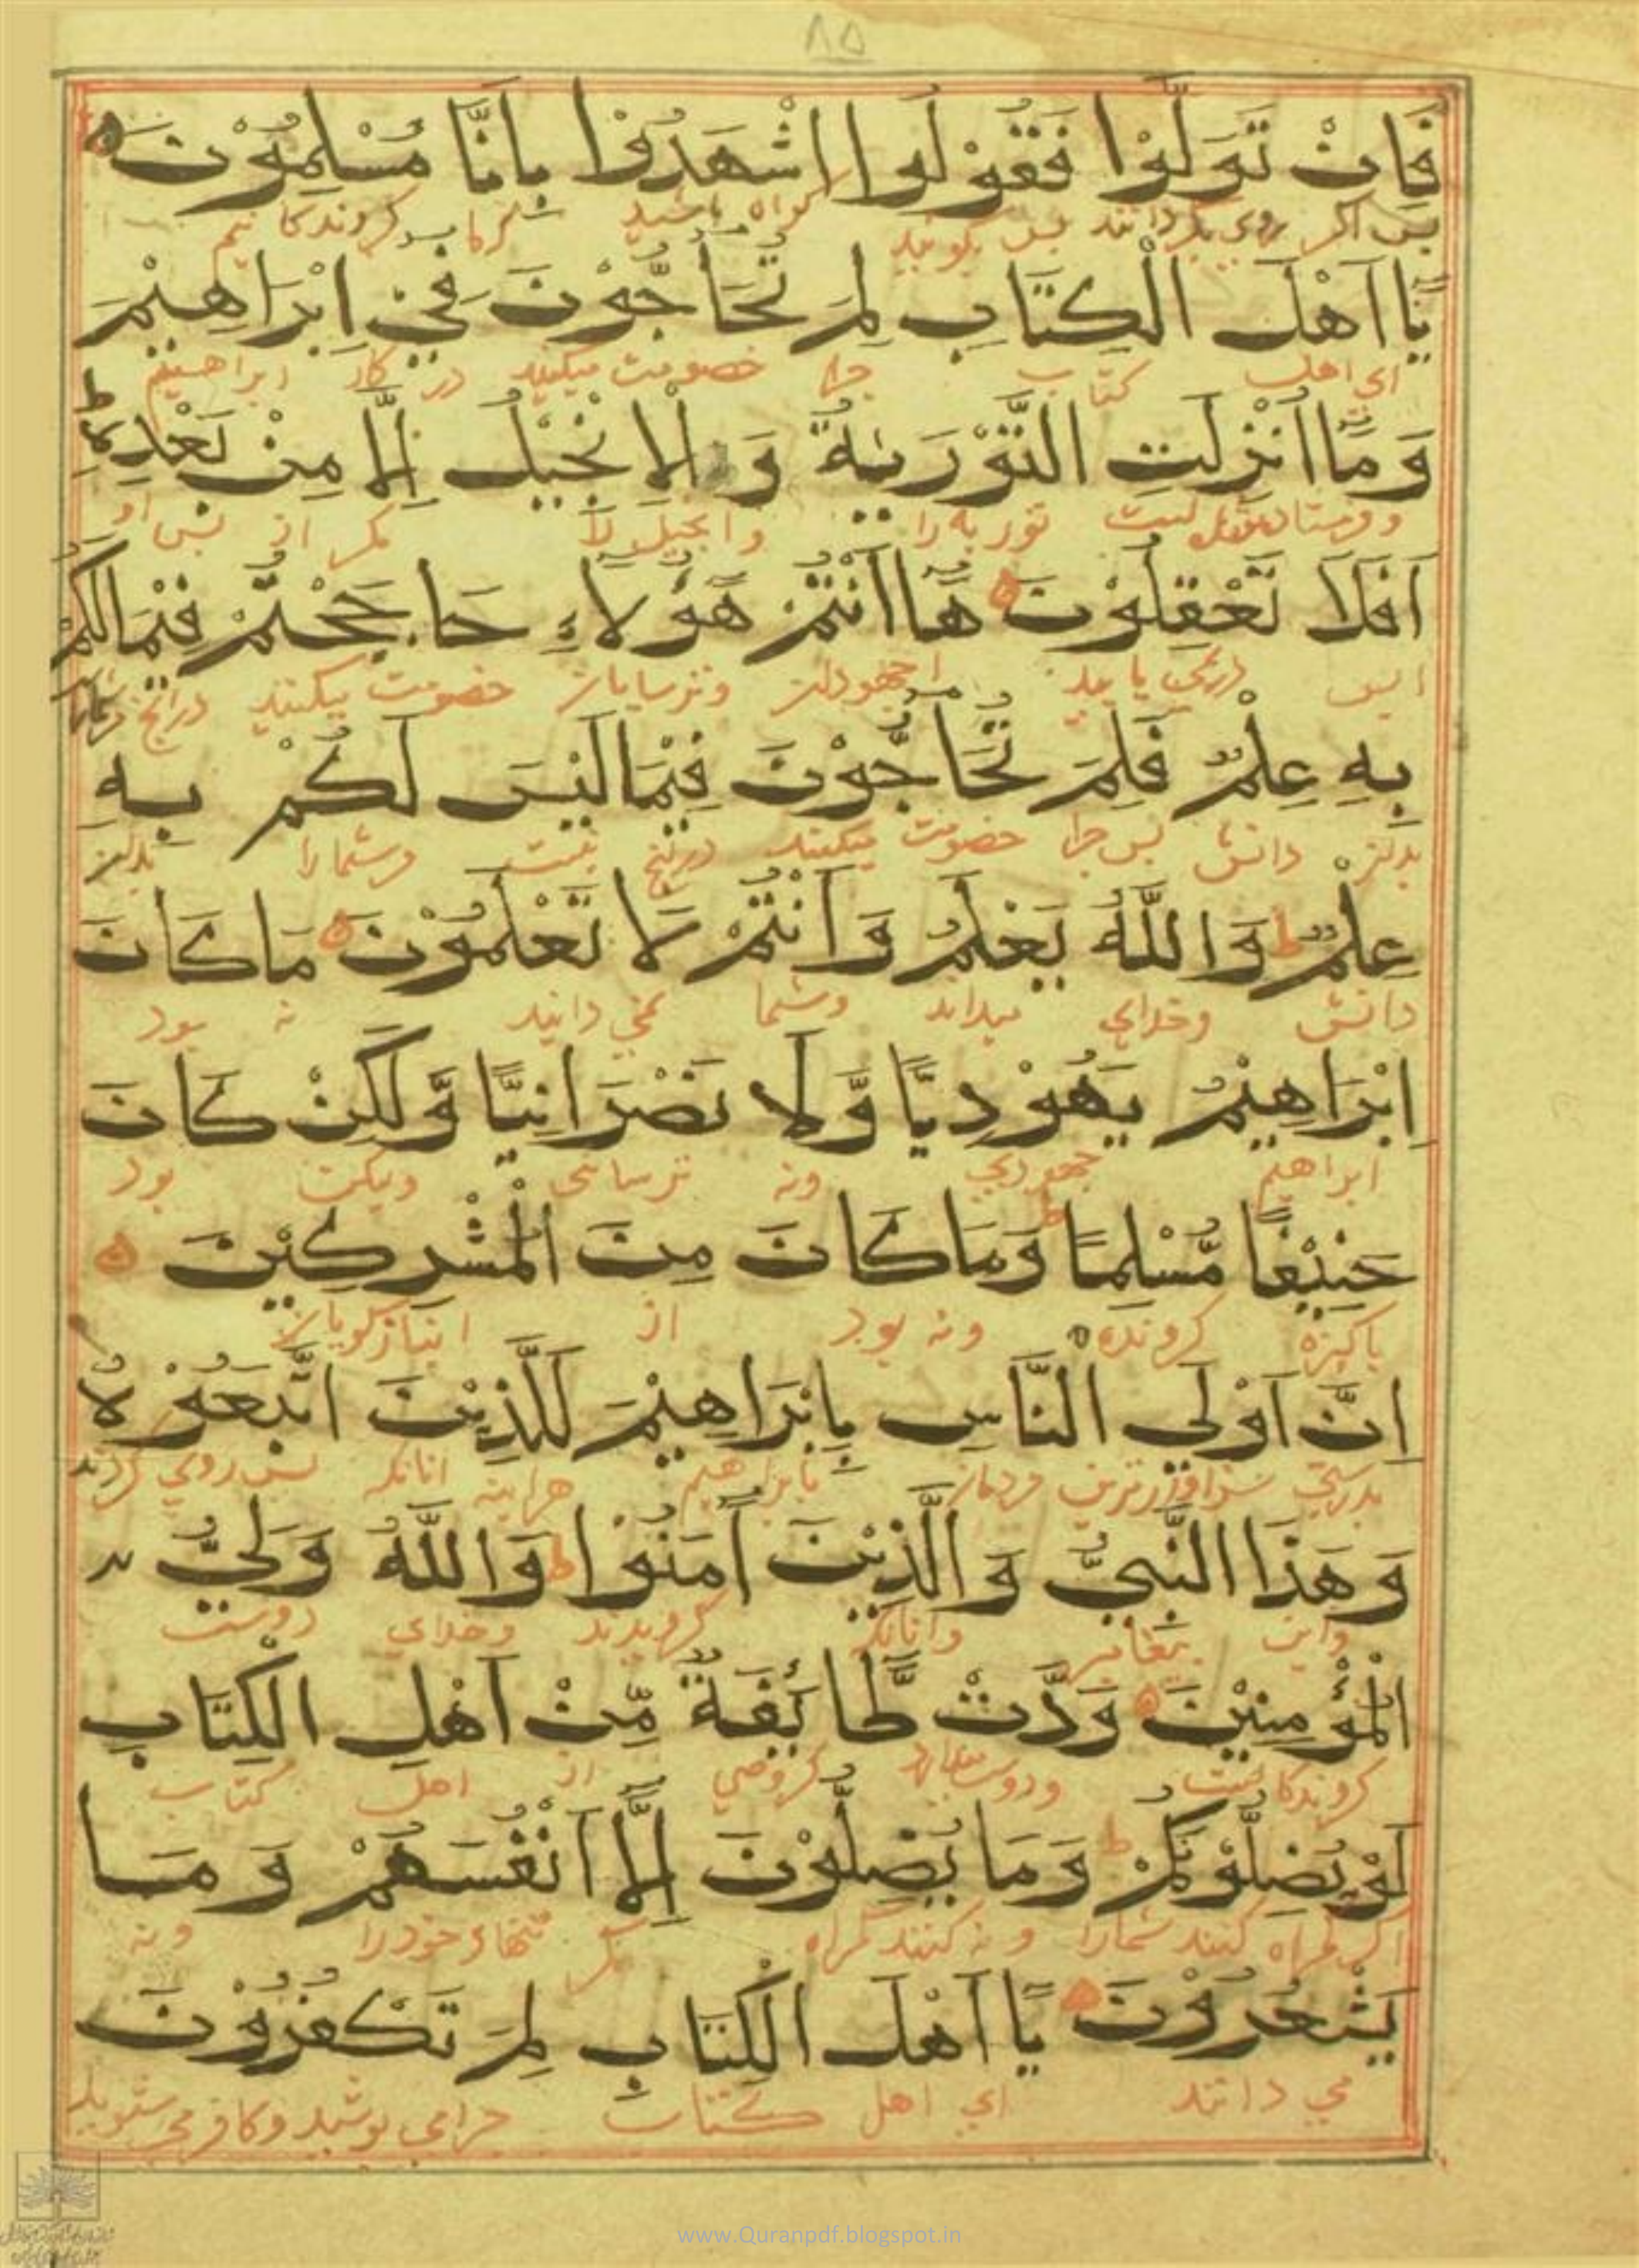 ٨٥
فَاِنْ تَوَلَّوْا فَقُوْلُوا اشْهَدُوْا بِاَنَّا مُسْلِمُوْنَ
پس اگر روی بگردانند پس بگویید گواه باشید گروندگانیم
يَٓا اَهْلَ الْكِتَابِ لِمَ تُحَٓاجُّوْنَ فِيْ اِبْرَاهِيْمَ
ای اهل کتاب چرا خصومت میکنید در کار ابراهیم
وَمَٓا اُنْزِلَتِ التَّوْرٰيةُ وَالْاِنْجِيْلُ اِلَّا مِنْ بَعْدِهٖ ط
توریه را وانجیل را مگر از پس او
اَفَلَا تَعْقِلُوْنَ هَٓا اَنْتُمْ هٰٓؤُلَاءِ حَاجَجْتُمْ فِيْمَا لَكُمْ
وترسایان خصومت میکنید درانچ
بِهٖ عِلْمٌ فَلِمَ تُحَٓاجُّوْنَ فِيْمَا لَيْسَ لَكُمْ بِهٖ
بدان دانش پس چرا خصومت میکنید درانچ نیست مرشما را بدان
عِلْمٌ ط وَاللّٰهُ يَعْلَمُ وَاَنْتُمْ لَا تَعْلَمُوْنَ مَا كَانَ
دانش وخدای میداند وشما نمی دانید نه بود
اِبْرَاهِيْمُ يَهُوْدِيًّا وَّلَا نَصْرَانِيًّا وَّلٰكِنْ كَانَ
ابراهیم جهودی ونه ترسائی ولیکن بود
حَنِيْفًا مُّسْلِمًا ط وَمَا كَانَ مِنَ الْمُشْرِكِيْنَ
پاکیزه گرونده ونه بود از انبازگویان
اِنَّ اَوْلَي النَّاسِ بِاِبْرَاهِيْمَ لَلَّذِيْنَ اتَّبَعُوْهُ
بدرستی سزاوارترین مردمان بابراهیم هراینه انانکه پس روی کردند
وَهٰذَا النَّبِيُّ وَالَّذِيْنَ اٰمَنُوْا ط وَاللّٰهُ وَلِيُّ
واین پیغامبر وانانکه گرویدند وخدای دوست
الْمُؤْمِنِيْنَ وَدَّتْ طَّائِفَةٌ مِّنْ اَهْلِ الْكِتَابِ
گروندگانست گروهی از اهل کتاب
لَوْ يُضِلُّوْنَكُمْ ط وَمَا يُضِلُّوْنَ اِلَّٓا اَنْفُسَهُمْ وَمَا
اگر گمراه کنند شمارا ونه کنند گمراه مگر تنهاء خود را ونه
يَشْعُرُوْنَ يَٓا اَهْلَ الْكِتَابِ لِمَ تَكْفُرُوْنَ
می دانند ای اهل کتاب چرا می پوشید وکافر می شوید
www.Quranpdf.blogspot.in